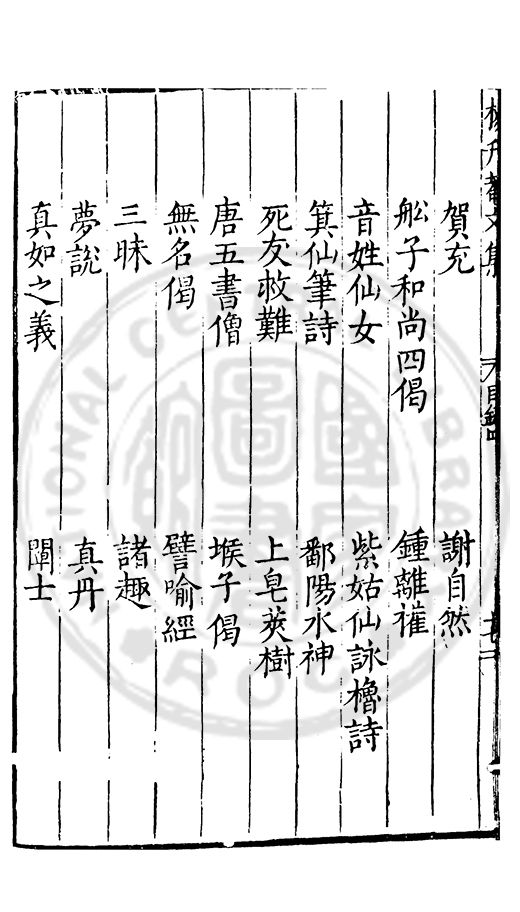 楊升菴文集
賀充　謝自然
舩子和尚四偈　鍾離權
音姓仙女　紫姑仙詠櫓詩
箕仙筆詩　鄱陽水神
死友救難　上皂莢樹
唐五書僧　堠子偈
無名偈　譬喻經
三昧　諸趣
夢說　真丹
真如之義　闡士